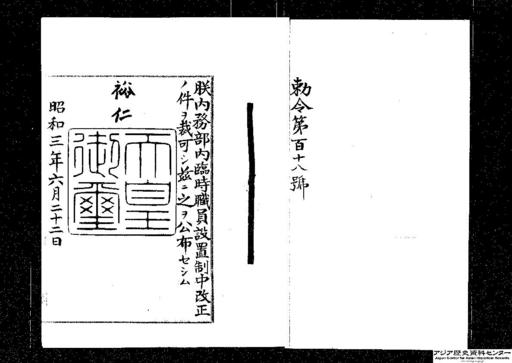 勅令第百十八號
朕内務部内臨時職員設置制中改正
ノ件ヲ裁可シ茲ニ之ヲ公布セシム
裕仁
天皇御璽
昭和三年六月二十二日
アジア歴史資料センター
Japan Center for Asian Historical Records